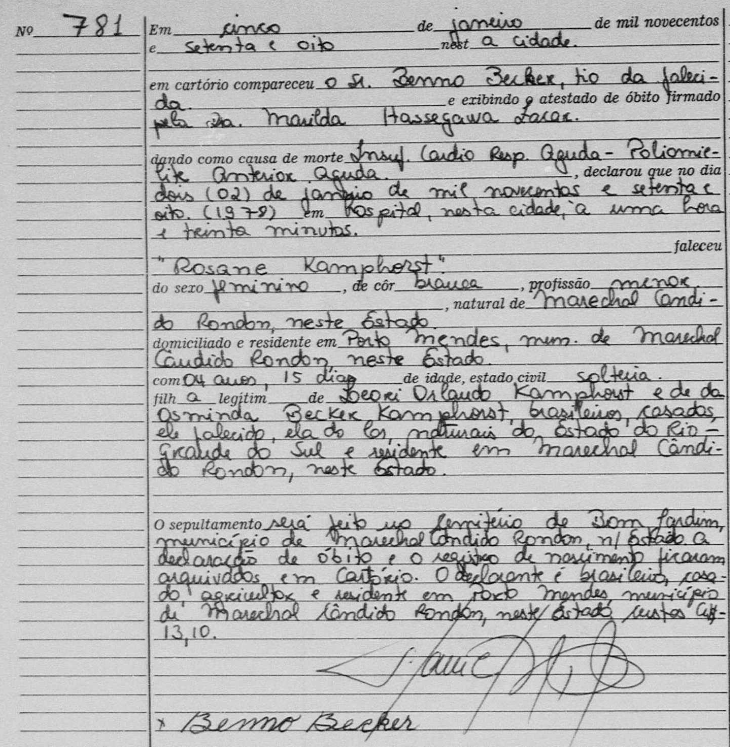 Nº 781 Em cinco de janeiro de mil novecentos
e setenta e oito nest a cidade.
em cartório compareceu o Sr. Benno Becker, tio da faleci-
da. e exibindo o atestado de óbito firmado
pela Dra. Marilda Hassegawa
dando como causa de morte Insuf. Cardio Resp. Aguda - Poliomie-
lite Anterior Aguda. , declarou que no dia
dois (02) de janeiro de mil novecentos e setenta e
oito. (1978) em hospital, nesta cidade, à uma hora
e trinta minutos.
faleceu
"Rosane Kamphorst"
do sexo feminino , de côr branca , profissão menor
, natural de Marechal Cândi-
do Rondon, neste Estado.
domiciliado e residente em Porto Mendes, mun. de Marechal
Cândido Rondon, neste Estado.
com 04 anos, 15 dias de idade, estado civil solteira.
filh a legítim de Orlando Kamphorst e de da
Osminda Becker Kamphorst, brasileiros, casados,
ele falecido, ela do lar, naturais do Estado do Rio-
Grande do Sul e residente em Marechal Cândi-
do Rondon, neste Estado.
O sepultamento será feito no Cemitério de Bom Jardim,
município de Marechal Cândido Rondon, n/ Estado. A
declaração de óbito e o registro de nascimento ficaram
arquivados em Cartório. O declarante é brasileiro, casa-
do, agricultor e residente em Porto Mendes, município
de Marechal Cândido Rondon, neste Estado. Custas Cr$-
13,10.
x Benno Becker